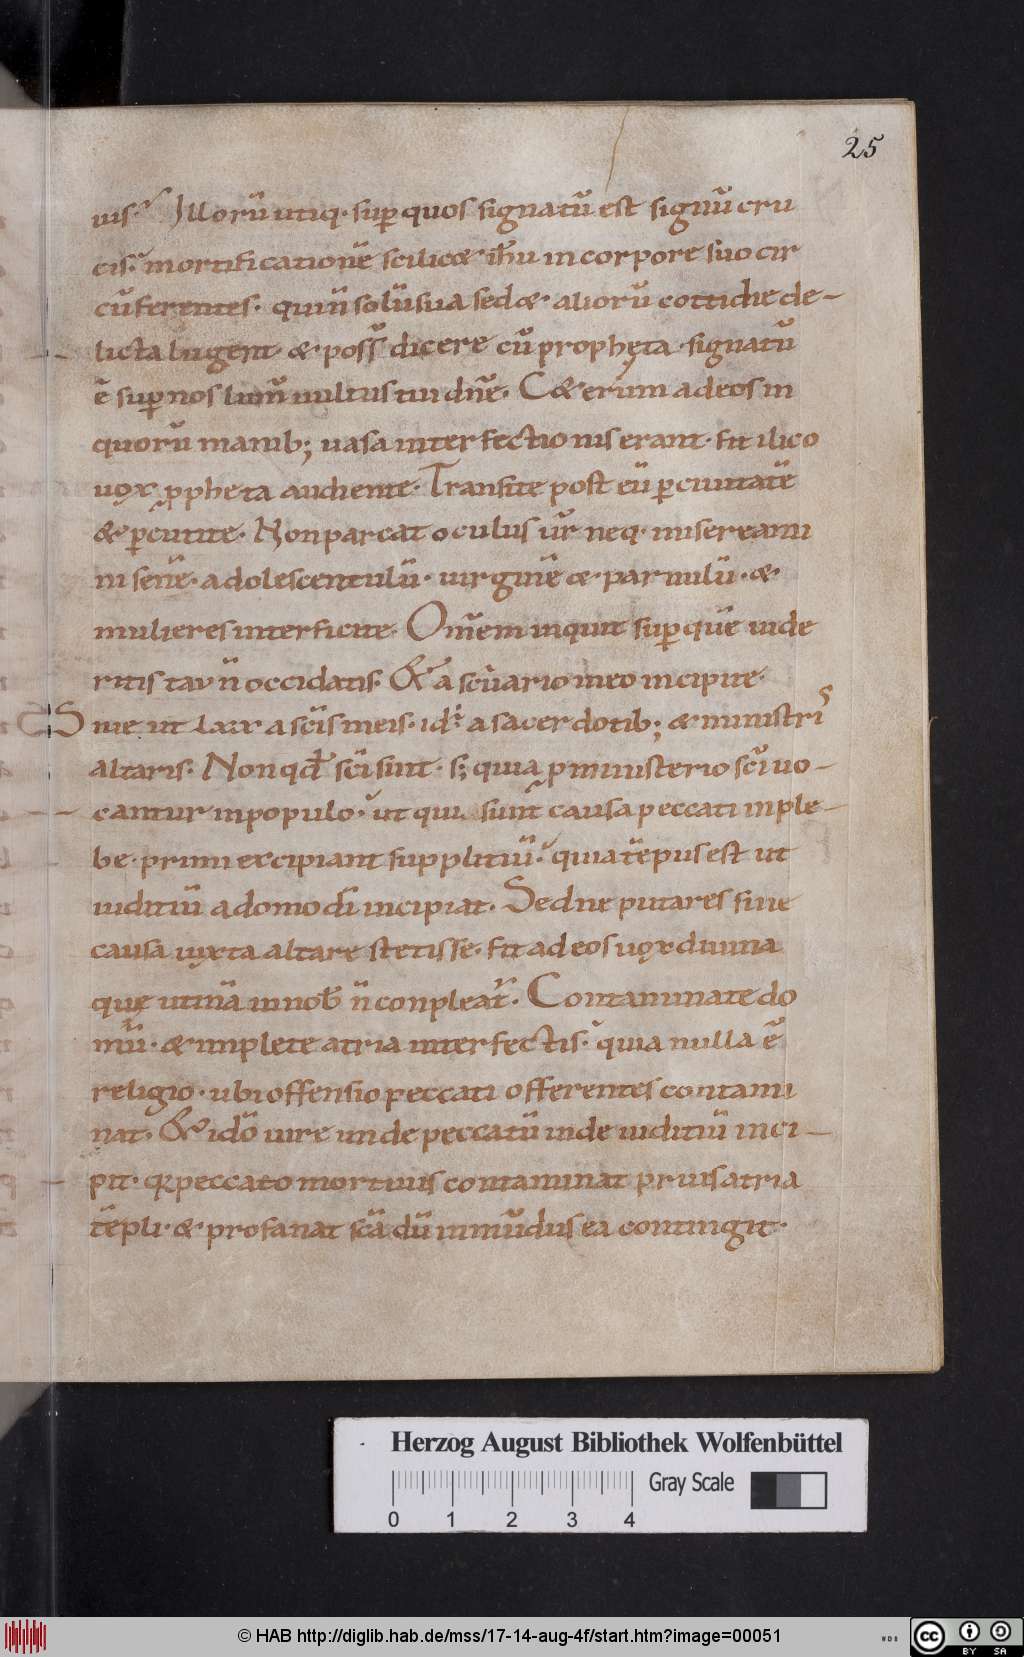 25
uis. Illorū utiq. sup̄ quos signatū est signū cru
cis. mortificationē scilicæ ih̄u in corpore suo cir
cūferentes. qui n̄ solū sua sed æ aliorū cottidie de-
licta lugent & poss̄ dicere cū propheta. signatū
ē sup̄ nos lum̄ uultus tui dn̄e. C&erum ad eos in
quorū manib; uasa interfectionis erant. fit ilico
uox ꝓpheta audiente. Transite post eū p̄ ciuitatē
& p̄cutite. Non parcat oculus ur̄ neq. misereami
ni senē. adolescentulū. uirginē & paruulū. &
mulieres interficite. Omnem inquit sup̄ quē uide
ritis tau n̄ occidatis. & a sc̄uario meo incipite.
Siue ut lxx a sc̄is meis. id. a sacerdotib; & ministris
altaris. Non qd̄ sc̄i sunt. s; quia ꝓ ministerio sc̄i uo-
cantur in populo. ut qui sunt causa peccati in ple-
be. primi excipiant supplitiū. quia tēpus est ut
iuditiū a domo dī incipiat. Sed ne putares siue
causa iuxta altare stetisse. fit ad eos uox diuina
quę utinā in nob̄ n̄ conpleat̄. Contaminate do
mū. & implete atria interfectis. quia nulla ē
religio. ubi offensio peccati offerentes contami
nat. & idō iure unde peccatū inde iuditiū inci-
pit. qꝛ peccato mortuus contaminat prius atria
tēpli. & profanat sc̄a dū inmūdus ea contingit.
Herzog August Bibliothek Wolfenbüttel
Gray Scale
0 1 2 3 4
© HAB http://diglib.hab.de/mss/17-14-aug-4f/start.htm?image=00051
WDB
cc BY SA